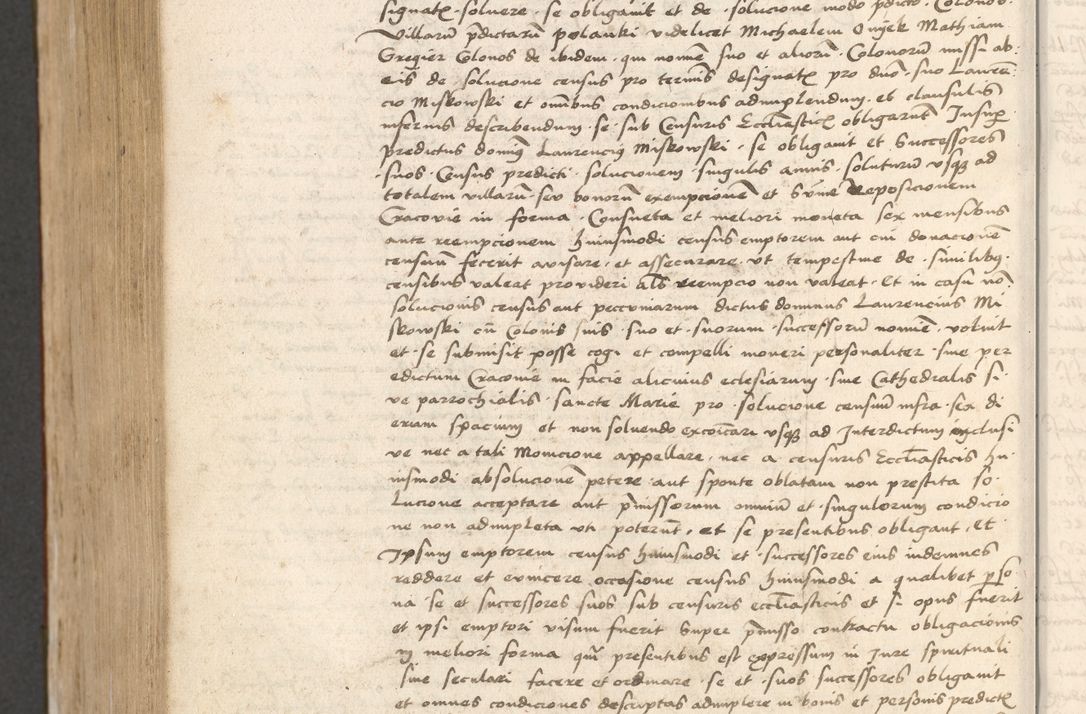 signatꝭ soluere se obligauit et de solucione modo pdicto Colonos
Villarū pdictarū polanki videlicet Michaelem Mathiam
Gregier Colonos de ibidem qui nomīe suo et aliorū Colonorū missi ab
eis de solucione census pro termīs designatꝭ pro dūo suo Laurē
cio Miskowski et omībus condicionibus adimplendum et clausulis
inferius describendum se sub Censuris Eccliasticꝭ obligarūt Insuꝑ
predictus dominꝰ Laurenciꝰ Miskowski se obligauit et Successores
suos Census predicti solucionem singulis annis soluturū vsqꝫ ad
totalem villarū seu bonorū exempcionē et Sūme Reposicionem
Cracovie in forma Consueta et meliori moneta sex mensibus
ante reempcionem huiusmodi census emptorem aut cui donacionē
censuum fecerit avisare et assecurare vt tempestiue de similibꝰ
censibus valeat provideri als reempcio non valeat Et in casu nō
solucionis census aut peccuniarum dictus dominus Laurencius Mi
skowski cū Colonis suis suo et suorum successorū nomīe voluit
et se submisit posse cogi et compelli moneri personaliter siue per
edictum Cracovie in facie alicuius eclesiarum siue Cathedralis si
ve parrochialis sancte Marie pro solucione censuum infra sex di
erum spacium et non soluendo excoīcari vsqꝫ ad Interdictum inclusi
ve nec a tali Monicione appellare nec a censuris Eccliasticis hu
iusmodi absolucionē petere aut sponte oblatam non prestita so
lucione acceptare aut pmissorum omniū et singulorum condicio
ne non adimpleta vti poterūt et se presentibus obligant et
Ipsum emptorem census huiusmodi et successores eius indemnes
reddere et evincere occasione census huiusmodi a qualibet ꝑso
na se et successores suos sub censuris eccliasticis et si opus fuerit
et ipsi emptori visum fuerit Super pmisso contractu obligacionis
in meliori forma quā presentibus est expressum in Jure spirituali
siue seculari facere et ordinare se et suos successores obligauit
et omnes condiciones descriptas adimplere in bonis et personis predictꝭ